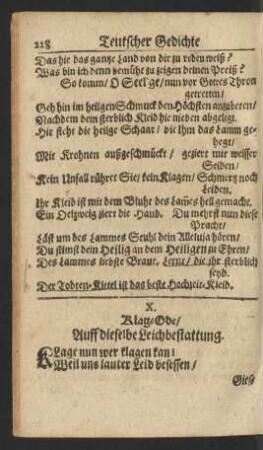 228 Teutscher Gedichte
Das hie das gantze Land von dir zu reden weiß?
Was bin ich denn bemüht zu zeigen deinen Preiß?
So komm/ O Seelge/ nun vor Gottes Thron
getretten/
Geh hin im heilgen Schmuck den Höchsten anzubeten/
Nachdem dein sterblich Kleid hie nieden abgelegt.
Hie steht die heilge Schaar/ die Ihm das Lamm ge-
hegt/
Mit Krohnen außgeschmückt/ geziert mit weisser
Seiden/
Kein Unfall rühret Sie/ kein Klagen/ Schmertz noch
Leiden.
Ihr Kleid ist mit dem Bluht des Lam̃es hell gemacht.
Ein Oelzweig ziert die Hand. Du mehrst nun diese
Pracht/
Läst um des Lammes Stuhl dein Alleluja hören/
Du stimst dein Heilig an dem Heiligen zu Ehren/
Des Lammes liebste Braut. Lernt/ die ihr sterblich
seyd.
Der Todten-Kittel ist das beste Hochzeit-Kleid.
X.
Klag-Ode/
Auff dieselbe Leichbestattung.
KLage nun wer klagen kan:
Weil uns lauter Leid besessen/
Giese